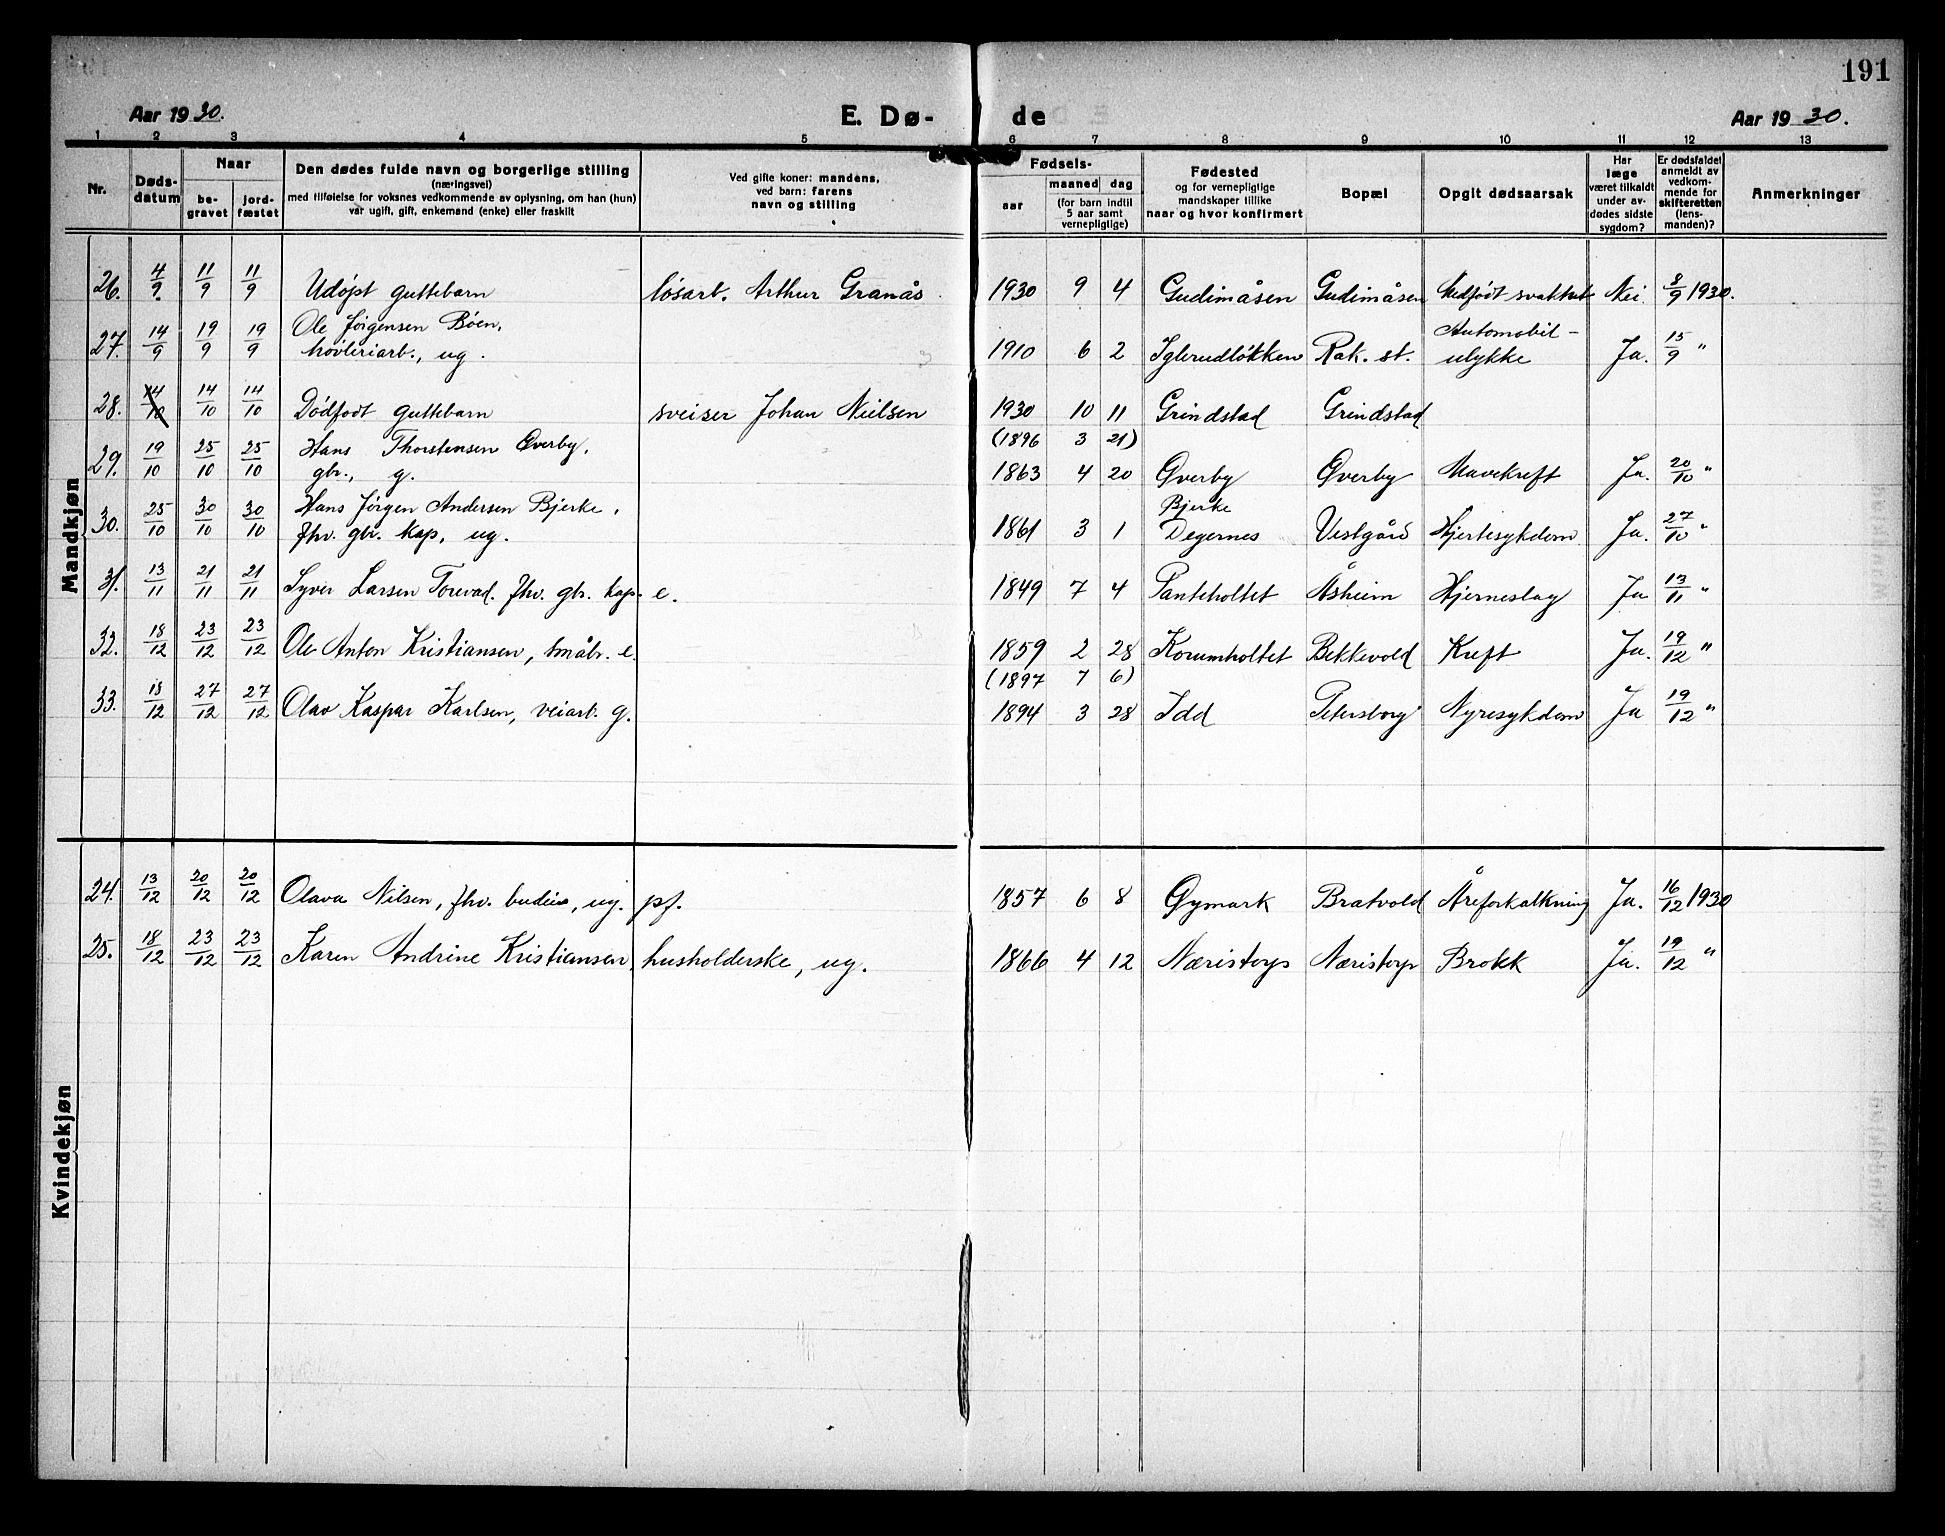 191
Aar 1930. E. Dø- de Aar 1930.
1 2 3 4 5 6 7 8 9 10 11 12 13
Nr. Døds-datum Naar be-gravet jord-fæstet Den dødes fulde navn og borgerlige stilling (næringsvei) med tilføielse for voksnes vedkommende av oplysning, om han (hun) var ugift, gift, enkemand (enke) eller fraskilt Ved gifte koner: mandens, ved barn: farens navn og stilling Fødsels- aar maaned dag (for barn indtil 5 aar samt vernepligtige) Fødested og for vernepligtige mandskaper tillike naar og hvor konfirmert Bopæl Opgit dødsaarsak Har læge været tilkaldt under av-dødes sidste sygdom? Er dødsfaldet anmeldt av vedkom-mende for skifteretten (lens-manden)? Anmerkninger
Mandkjøn
26. 4/9. 11/9 11/9 Udøpt guttebarn løsarb. Arthur Granås 1930 9 4 Gudimåsen Gudimåsen Medfødt svakhet Nei 8/9 1930.
Ole Jørgensen Bøen, Automobil-
27. 14/9 19/9 19/9 høvleriarb., ug. 1910 6 2 Iglerudløkken Rak. st. ulykke Ja. 15/9 "
28. 14/10 14/10 14/10 Dødfødt guttebarn sveiser Johan Nielsen 1930 10 11 Grindstad Grindstad
Hans Thorstensen Øverby, (1896 3 21)
29. 19/10 25/10 25/10 gbr., g. 1863 4 20 Øverby Øverby Mavekreft Ja. 20/10 "
Hans Jørgen Andersen Bjerke, Bjerke
30. 25/10 30/10 30/10 fhv. gbr. kap, ug. 1861 3 1 Degernes Vestgård Hjertesykdom Ja. 27/10 "
31. 13/11 21/11 21/11 Syver Larsen Torevad. fhv. gbr. kap. e. 1849 7 4 Panteholtet Åsheim Hjerneslag Ja 13/11 "
32. 18/12 23/12 23/12 Ole Anton Kristiansen, småbr. e. 1859 2 28 Korumholtet Bekkevold Kreft Ja. 19/12 "
(1897 7 6)
33. 18/12 27/12 27/12 Olav Kaspar Karlsen, veiarb. g. 1894 3 28 Idd Petersborg Nyresykdom Ja 19/12 "
Kvindekjøn
24. 13/12 20/12 20/12 Olava Nilsen, fhv. budeie, ug. pf. 1857 6 8 Gymark Bratvold Åreforkalkning Ja. 16/12 1930
25. 18/12 23/12 23/12 Karen Andrine Kristiansen, husholderske, ug. 1866 4 12 Næristorp Næristorp Brokk Ja. 19/12 "